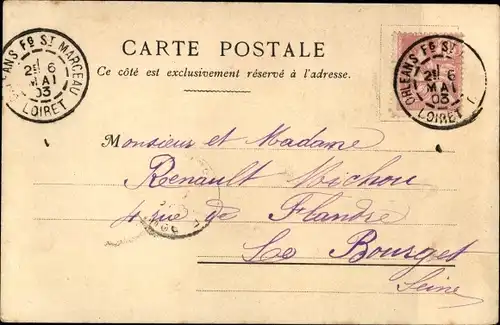 ORLEANS FG ST MARCEAU
2E 6
MAI
03
LOIRET
ORLEANS FG ST
2E 6
MAI
03
LOIRET
CARTE POSTALE
Ce côté est exclusivement réservé à l'adresse.
Monsieur et Madame
Renault Michou
4 rue de Flandre
Le Bourget
Seine